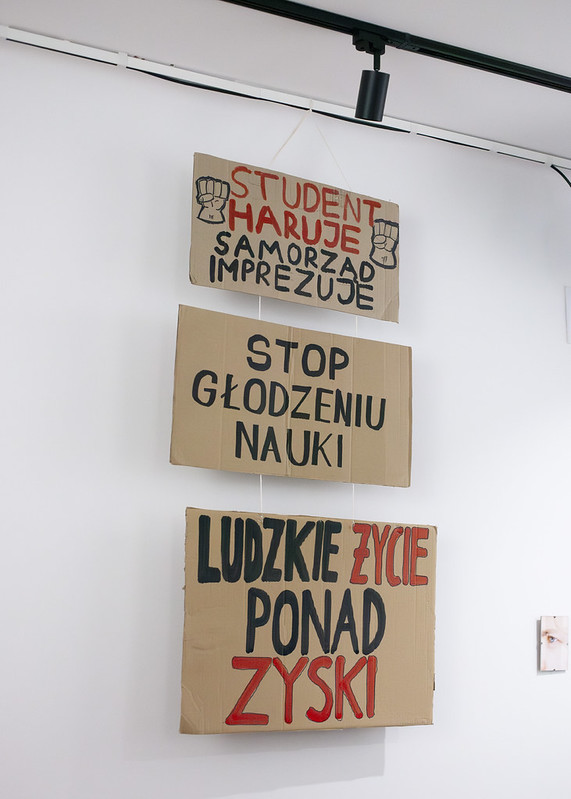 STUDENT
HARUJE
SAMORZĄD
IMPREZUJE
STOP
GŁODZENIU
NAUKI
LUDZKIE ŻYCIE
PONAD
ZYSKI